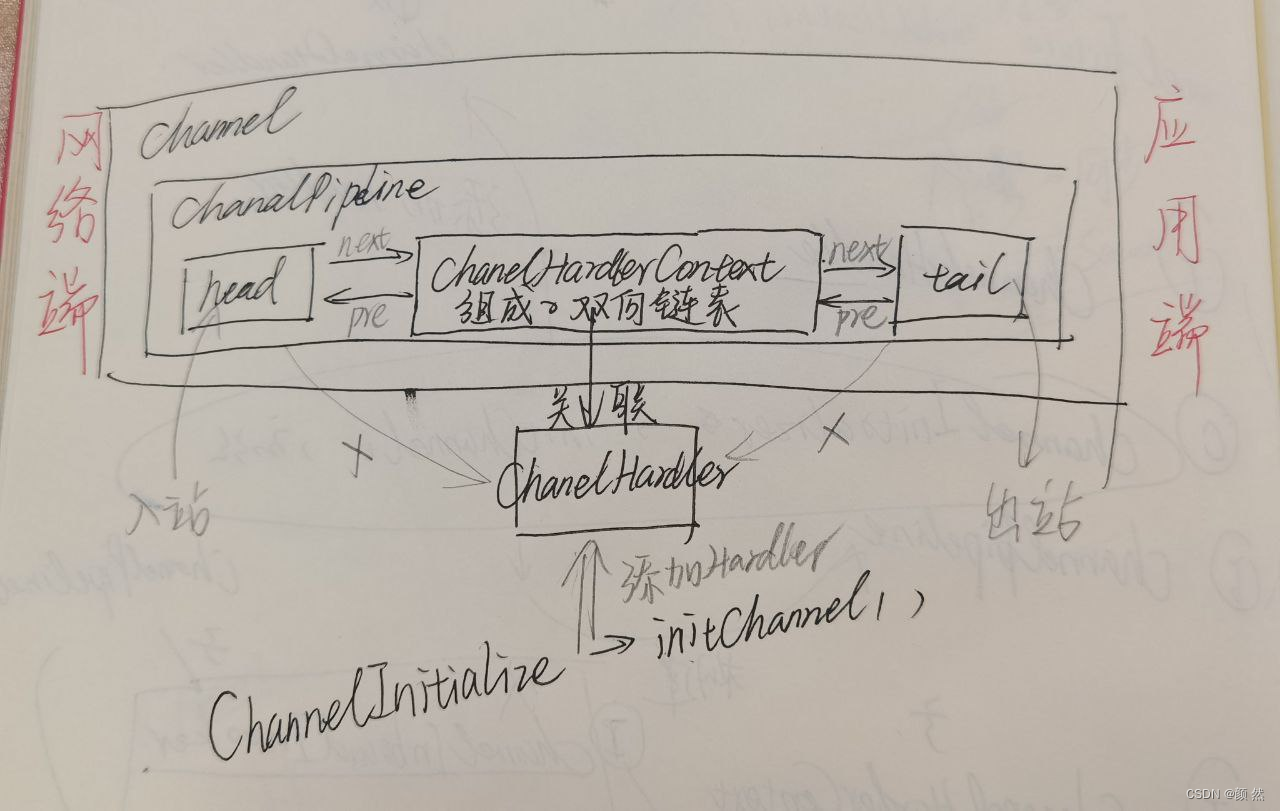 网络端
应用端
Channel
ChanalPipeline
head
next
pre
ChanelHardlerContext
组成の双向链表
next
pre
tail
关联
X
X
ChanelHardler
入站
出站
添加Hardler
ChannelInitialize
initChannel()
CSDN @颜 然